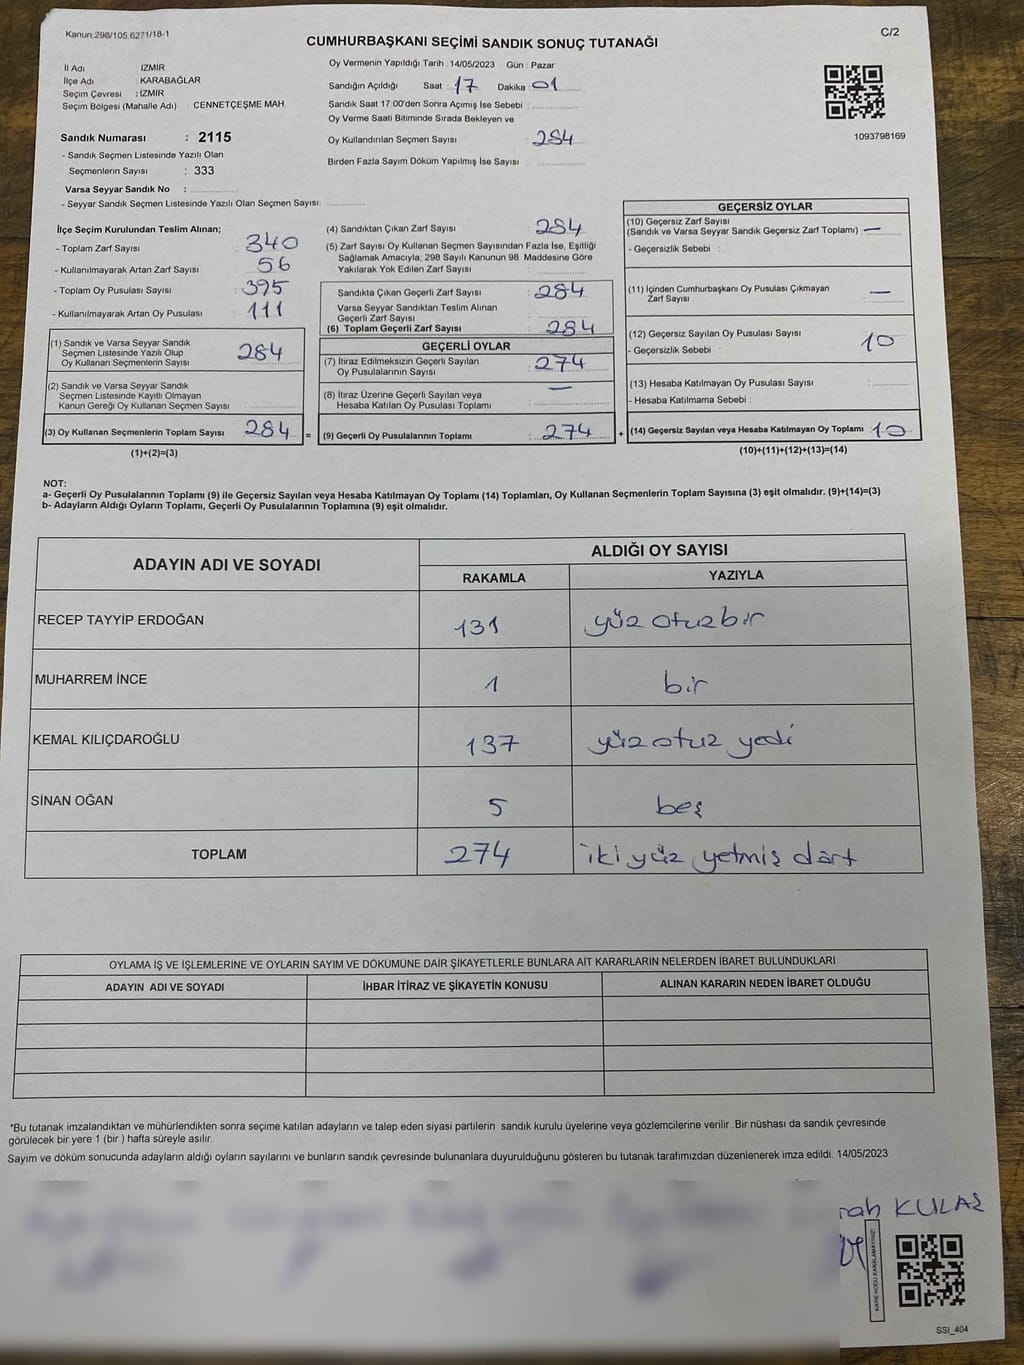 Kanun:298/105;6271/18-1
C/2
CUMHURBAŞKANI SEÇİMİ SANDIK SONUÇ TUTANAĞI
İl Adı : İZMİR
İlçe Adı : KARABAĞLAR
Seçim Çevresi : İZMİR
Seçim Bölgesi (Mahalle Adı) : CENNETÇEŞME MAH
Sandık Numarası : 2115
- Sandık Seçmen Listesinde Yazılı Olan
Seçmenlerin Sayısı : 333
Varsa Seyyar Sandık No :
- Seyyar Sandık Seçmen Listesinde Yazılı Olan Seçmen Sayısı:
Oy Vermenin Yapıldığı Tarih : 14/05/2023 Gün : Pazar
Sandığın Açıldığı Saat : 17 Dakika : 01
Sandık Saat 17:00'den Sonra Açımış İse Sebebi :
Oy Verme Saati Bitiminde Sırada Bekleyen ve
Oy Kullandırılan Seçmen Sayısı : 284
Birden Fazla Sayım Döküm Yapılmış İse Sayısı :
1093798169
İlçe Seçim Kurulundan Teslim Alınan;
- Toplam Zarf Sayısı : 340
- Kullanılmayarak Artan Zarf Sayısı : 56
- Toplam Oy Pusulası Sayısı : 395
- Kullanılmayarak Artan Oy Pusulası : 111
(1) Sandık ve Varsa Seyyar Sandık
Seçmen Listesinde Yazılı Olup
Oy Kullanan Seçmenlerin Sayısı 284
(2) Sandık ve Varsa Seyyar Sandık
Seçmen Listesinde Kayıtlı Olmayan
Kanun Gereği Oy Kullanan Seçmen Sayısı :
(3) Oy Kullanan Seçmenlerin Toplam Sayısı 284 =
(1)+(2)=(3)
(4) Sandıktan Çıkan Zarf Sayısı : 284
(5) Zarf Sayısı Oy Kullanan Seçmen Sayısından Fazla İse, Eşitliği
Sağlamak Amacıyla; 298 Sayılı Kanunun 98. Maddesine Göre
Yakılarak Yok Edilen Zarf Sayısı :
Sandıkta Çıkan Geçerli Zarf Sayısı : 284
Varsa Seyyar Sandıktan Teslim Alınan
Geçerli Zarf Sayısı :
(6) Toplam Geçerli Zarf Sayısı : 284
GEÇERLİ OYLAR
(7) İtiraz Edilmeksizin Geçerli Sayılan
Oy Pusulalarının Sayısı : 274
(8) İtiraz Üzerine Geçerli Sayılan veya
Hesaba Katılan Oy Pusulası Toplamı : —
(9) Geçerli Oy Pusulalarının Toplamı : 274 +
GEÇERSİZ OYLAR
(10) Geçersiz Zarf Sayısı
(Sandık ve Varsa Seyyar Sandık Geçersiz Zarf Toplamı) : —
- Geçersizlik Sebebi :
(11) İçinden Cumhurbaşkanı Oy Pusulası Çıkmayan
Zarf Sayısı : —
(12) Geçersiz Sayılan Oy Pusulası Sayısı : 10
- Geçersizlik Sebebi :
(13) Hesaba Katılmayan Oy Pusulası Sayısı :
- Hesaba Katılmama Sebebi :
(14) Geçersiz Sayılan veya Hesaba Katılmayan Oy Toplamı : 10
(10)+(11)+(12)+(13)=(14)
NOT:
a- Geçerli Oy Pusulalarının Toplamı (9) ile Geçersiz Sayılan veya Hesaba Katılmayan Oy Toplamı (14) Toplamları, Oy Kullanan Seçmenlerin Toplam Sayısına (3) eşit olmalıdır. (9)+(14)=(3)
b- Adayların Aldığı Oyların Toplamı, Geçerli Oy Pusulalarının Toplamına (9) eşit olmalıdır.
ADAYIN ADI VE SOYADI ALDIĞI OY SAYISI
RAKAMLA YAZIYLA
RECEP TAYYİP ERDOĞAN 131 yüz otuzbir
MUHARREM İNCE 1 bir
KEMAL KILIÇDAROĞLU 137 yüz otuz yedi
SİNAN OĞAN 5 beş
TOPLAM 274 iki yüz yetmiş dört
OYLAMA İŞ VE İŞLEMLERİNE VE OYLARIN SAYIM VE DÖKÜMÜNE DAİR ŞİKAYETLERLE BUNLARA AİT KARARLARIN NELERDEN İBARET BULUNDUKLARI
ADAYIN ADI VE SOYADI İHBAR İTİRAZ VE ŞİKAYETİN KONUSU ALINAN KARARIN NEDEN İBARET OLDUĞU
*Bu tutanak imzalandıktan ve mühürlendikten sonra seçime katılan adayların ve talep eden siyasi partilerin sandık kurulu üyelerine veya gözlemcilerine verilir .Bir nüshası da sandık çevresinde
görülecek bir yere 1 (bir ) hafta süreyle asılır.
Sayım ve döküm sonucunda adayların aldığı oyların sayılarını ve bunların sandık çevresinde bulunanlara duyurulduğunu gösteren bu tutanak tarafımızdan düzenlenerek imza edildi. 14/05/2023
KARE KODU KARALAMAYINIZ!
SSI_404